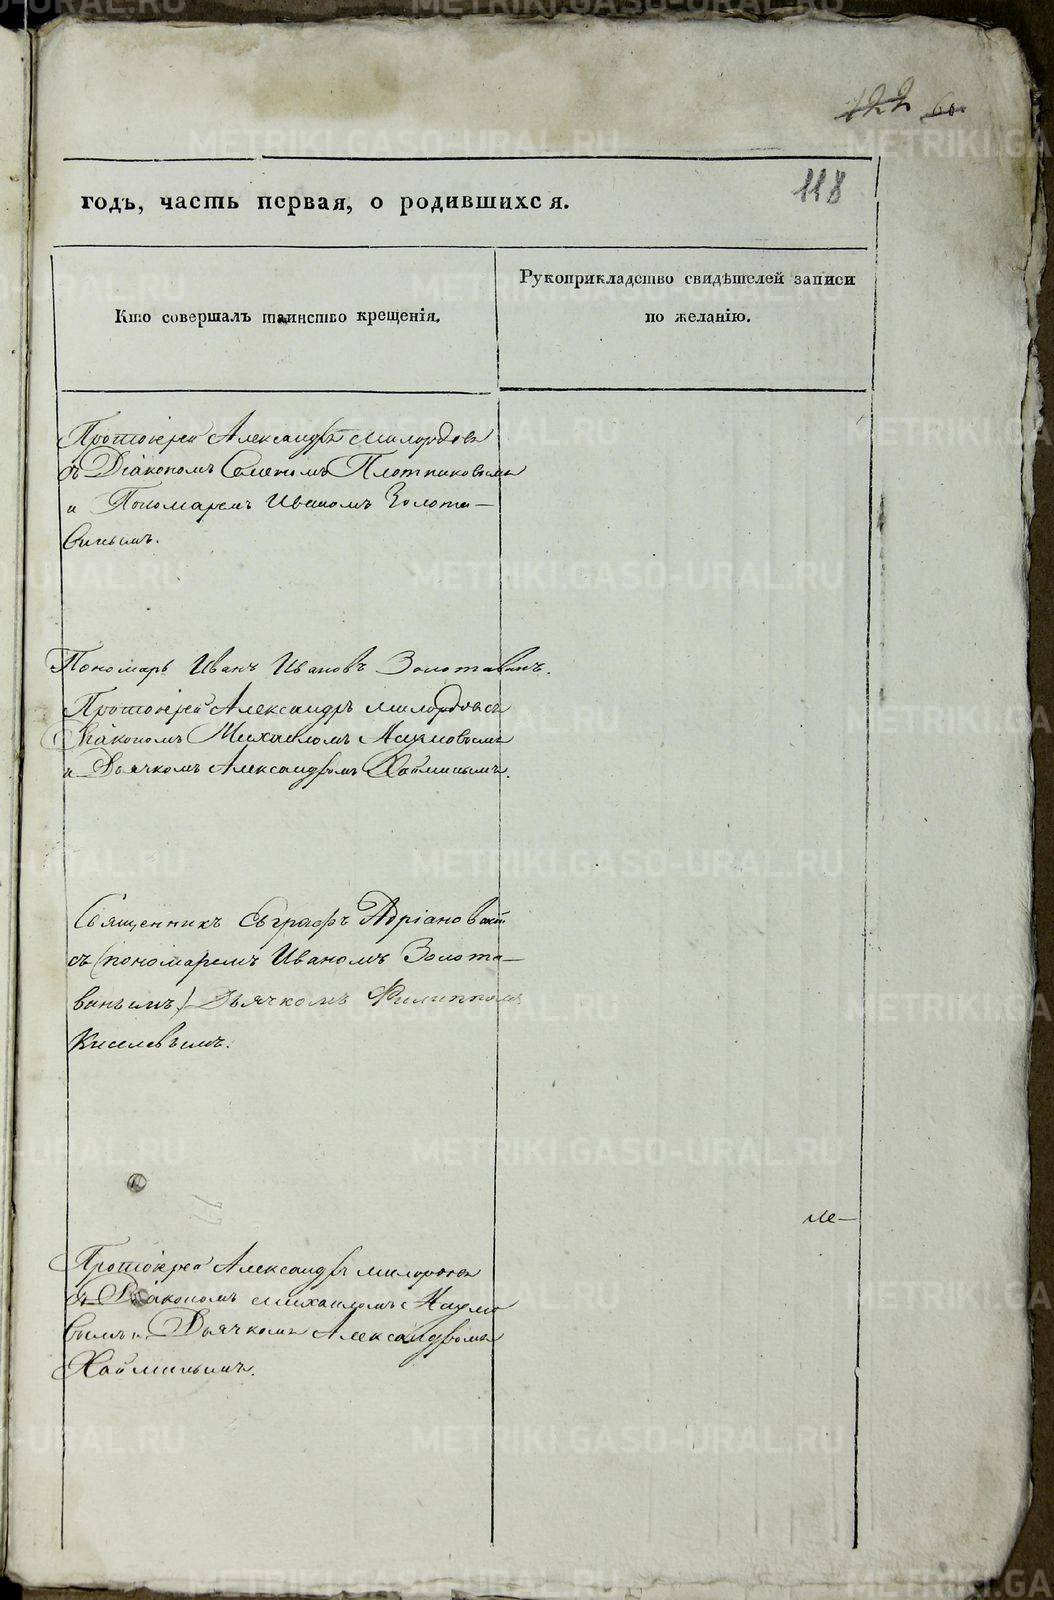 122 60
118
годъ, часть первая, о родившихся.
Кто совершалъ таинство крещенія.
Рукоприкладство свидѣтелей записи
по желанію.
Протоіерей Александръ Милордовъ
съ Діакономъ Семеномъ Плотниковымъ
и Пономаремъ Иваномъ Золота-
винымъ.
Пономарь Иванъ Ивановъ Золотавинъ.
Протоіерей Александръ Милордовъ съ
Діакономъ Михаиломъ Наумовымъ
и Дьячкомъ Александромъ Хайминымъ.
Священникъ Евграфъ Адріановскій
съ (пономаремъ Иваномъ Золота-
винымъ) Дьячкомъ Филиппомъ
Киселевымъ.
ле-
Протоіерей Александръ Милордовъ
съ Діакономъ Михаиломъ Наумо
вымъ и Дьячкомъ Александромъ
Хайминымъ.
METRIKI.GASO-URAL.RU